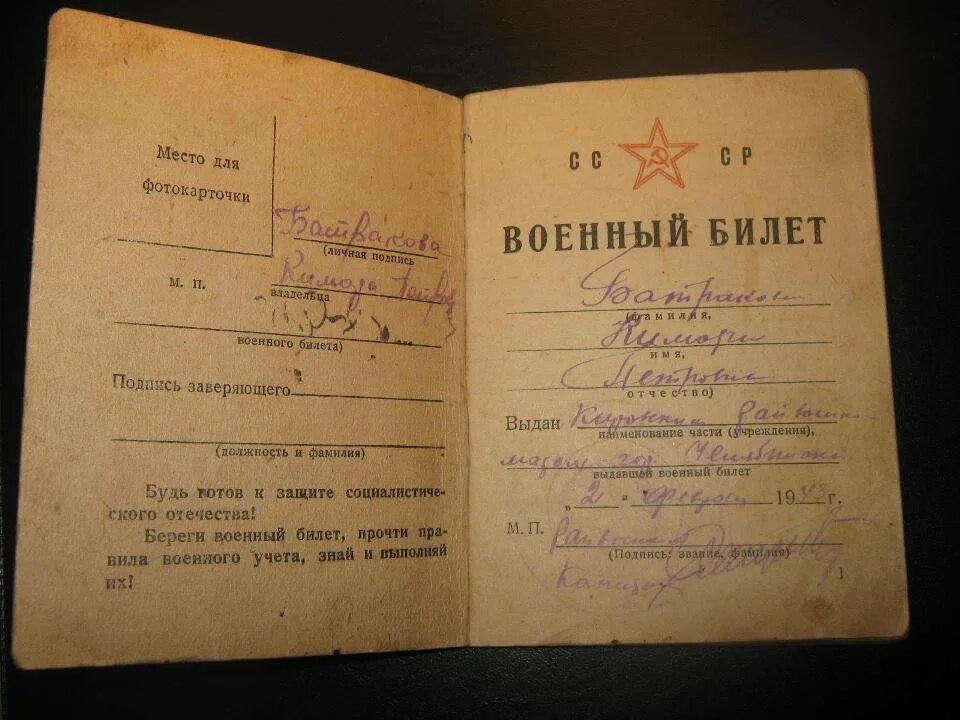 Место для
фотокарточки
Батракова
(личная подпись
М. П.
владельца
военного билета)
Подпись заверяющего
(должность и фамилия)
Будь готов к защите социалистиче-
ского отечества!
Береги военный билет, прочти пра-
вила военного учета, знай и выполняй
их!
СС СР
ВОЕННЫЙ БИЛЕТ
Батракова
(фамилия,
имя,
Петровна
отчество)
Выдан
наименование части (учреждения),
гор. Челябинска
выдавшей военный билет
„2 " февраля 194 г.
М. П.
(Подпись: звание, фамилия)
1